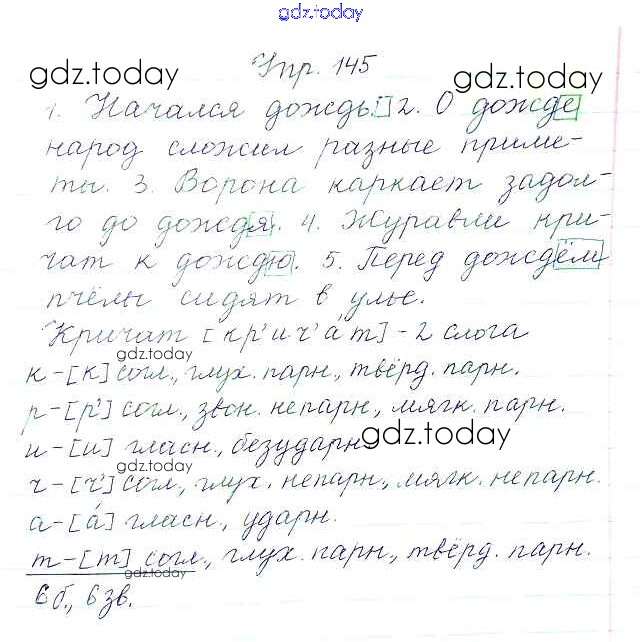 gdz.today
Упр. 145
gdz.today
gdz.today
1. Начался дождь. 2. О дожде
народ сложил разные приме-
ты. 3. Ворона каркает задол-
го до дождя. 4. Журавли кри-
чат к дождю. 5. Перед дождём
пчёлы сидят в улье.
Кричат [кр'ич'áт] - 2 слога
gdz.today
к - [к] согл., глух. парн., твёрд. парн.
р - [р'] согл., звон. непарн., мягк. парн.
и - [и] гласн., безударн.
gdz.today
gdz.today
ч - [ч'] согл., глух. непарн., мягк. непарн.
а - [á] гласн., ударн.
т - [т] согл., глух. парн., твёрд. парн.
gdz.today
6 б., 6 зв.